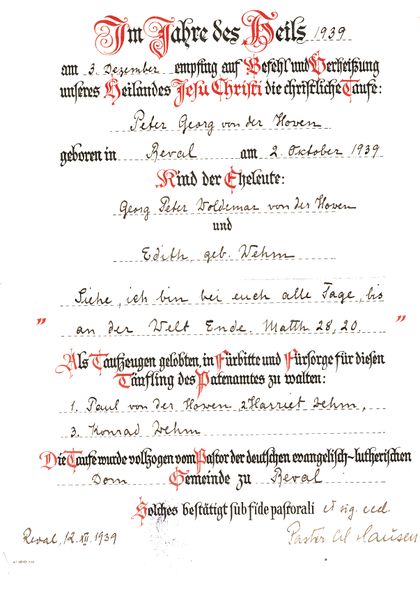 Im Jahre des Heils 1939
am 3. Dezember empfing auf Befehl und Verheißung
unseres Heilandes Jesu Christi die christliche Taufe:
Peter Georg von der Hoven
geboren in Reval am 2. Oktober 1939
Kind der Eheleute:
Georg Peter Woldemar von der Hoven
und
Edith geb. Wehm
Siehe, ich bin bei euch alle Tage, bis
" an der Welt Ende. Matth 28,20. "
Als Taufzeugen gelobten, in Fürbitte und Fürsorge für diesen
Täufling des Patenamtes zu walten:
1. Paul von der Hoven 2 Harriet Wehm,
3. Konrad Wehm
Die Taufe wurde vollzogen vom Pastor der deutschen evangelisch-lutherischen
Dom Gemeinde zu Reval
Solches bestätigt sub fide pastorali et sig. eccl.
Reval, 12. XII. 1939 Pastor Hausen